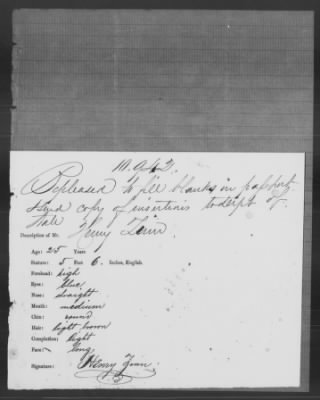 10.942.
Be pleased to fill blanks in passport,
send copy of insertions to dept of
State
Description of Mr. Henry Zinn
Age: 25 Years
Stature: 5 Feet 6. Inches, English.
Forehead: high
Eyes: blue
Nose: straight
Mouth: medium
Chin: round
Hair: light brown
Complexion: light
Face: long
Signature: Henry Zinn